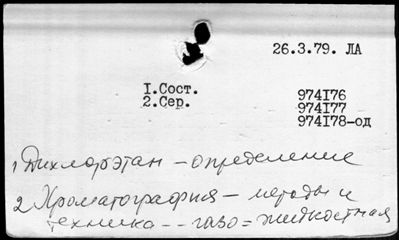 26.3.79. ЛА
I.Сост.
2.Сер.
974I76
974I77
974I78-од
1 Дихлорэтан – определение
2 Хроматография – методы и
техника -- газо=жидкостная